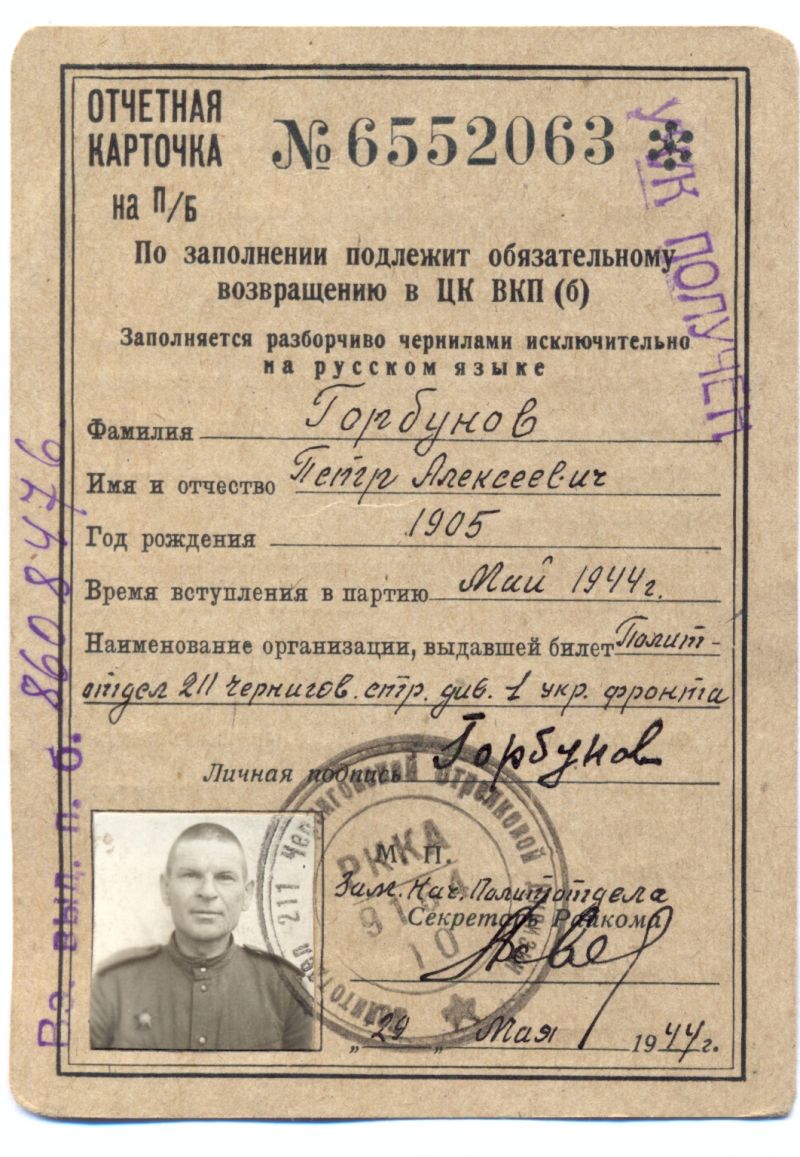 ОТЧЕТНАЯ
КАРТОЧКА
на П/Б
№ 6552063
УЧК ПОЛУЧЕН
По заполнении подлежит обязательному
возвращению в ЦК ВКП (б)
Заполняется разборчиво чернилами исключительно
на русском языке
Фамилия Горбунов
Имя и отчество Петр Алексеевич
Год рождения 1905
Время вступления в партию Май 1944 г.
Наименование организации, выдавшей билет Полит-
отдел 211 Чернигов. стр. див. 1 укр. фронта
Личная подпись Горбунов
М. П.
Зам. Нач. Политотдела
Секретарь Райкома
„29„ Мая 1944 г.
Вз. выд. п. б. 8608476
Политотдел 211 Черниговской Стрелковой Дивизии
РККА